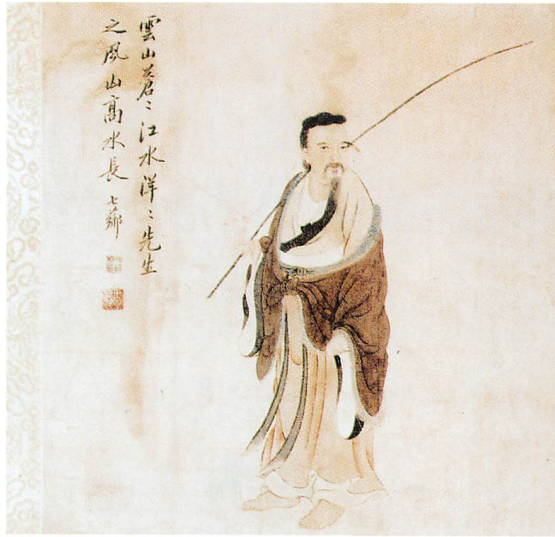 雲山蒼〻江水洋〻先生
之風山高水長 七薌